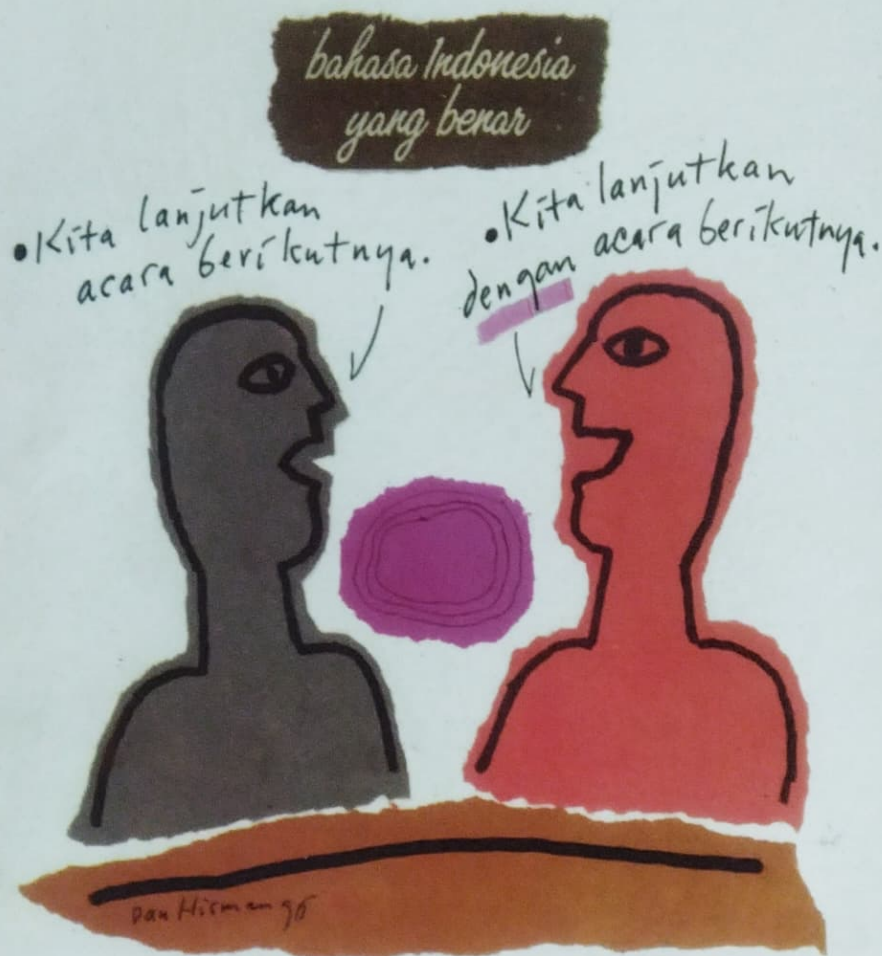 bahasa Indonesia
yang benar
•Kita lanjutkan
acara berikutnya.
•Kita lanjutkan
dengan acara berikutnya.